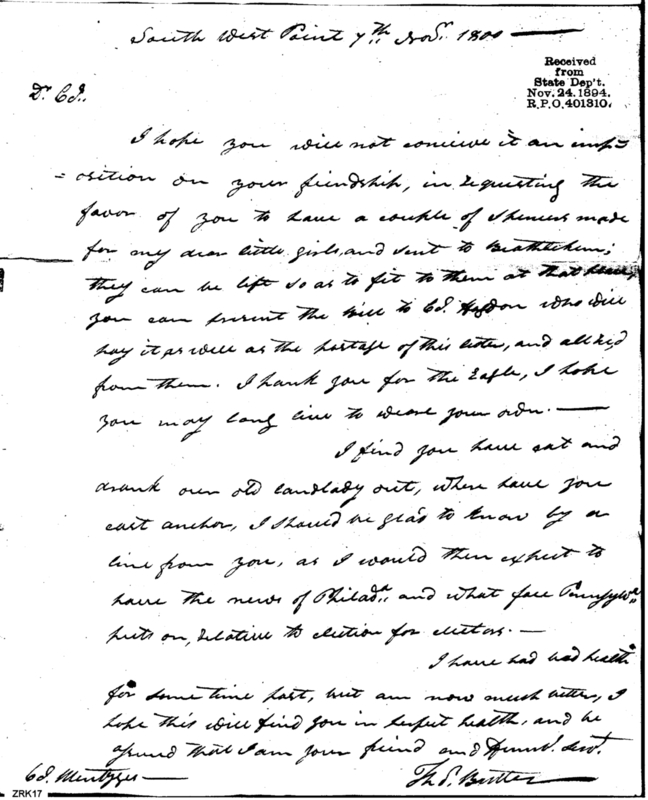 South West Point 7th. Novr. 1800
Received
from
State Dep't.
Nov. 24. 1894.
R.P.O. 401310.
Dr. Col.
I hope you will not conceive it an imp=
=osition on your friendship, in requesting the
favor of you to have a couple of made
for my dear little girls, and sent to Bethlehem;
they can be left so as to fit to them at that
you can present the bill to Col. who will
pay it as well as the postage of this letter, and all recd
from them. I thank you for the Eagle, I hope
you may long live to wear your own. —
I find you have eat and
drank our old landlady out, where have you
cast anchor, I should be glad to know by a
line from you, as I would then expect to
have the news of Philada. and what face Pennsylva.
puts on, relative to election for electors. —
I have had bad health
for some time past, but am now much better, I
hope this will find you in perfect health, and be
assured that I am your friend and Humbl. Servt.
Col. Mentzges —
Th S. Butler
ZRK17